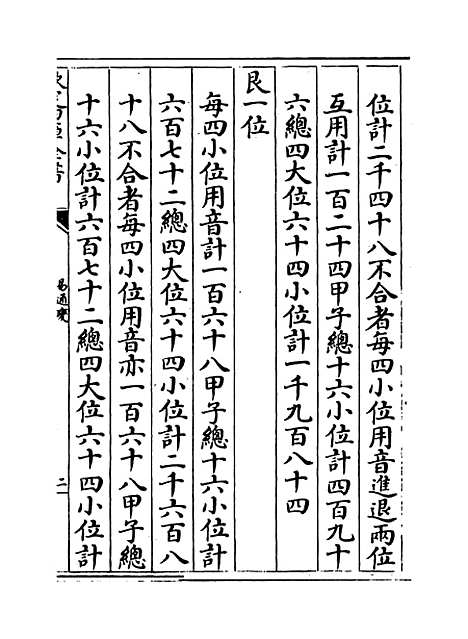 位計二千四十八不合者每四小位用音進退兩位
互用計一百二十四甲子總十六小位計四百九十
六總四大位六十四小位計一千九百八十四
艮一位
每四小位用音計一百六十八甲子總十六小位計
六百七十二總四大位六十四小位計二千六百八
十八不合者每四小位用音亦一百六十八甲子總
十六小位計六百七十二總四大位六十四小位計
易通變
二